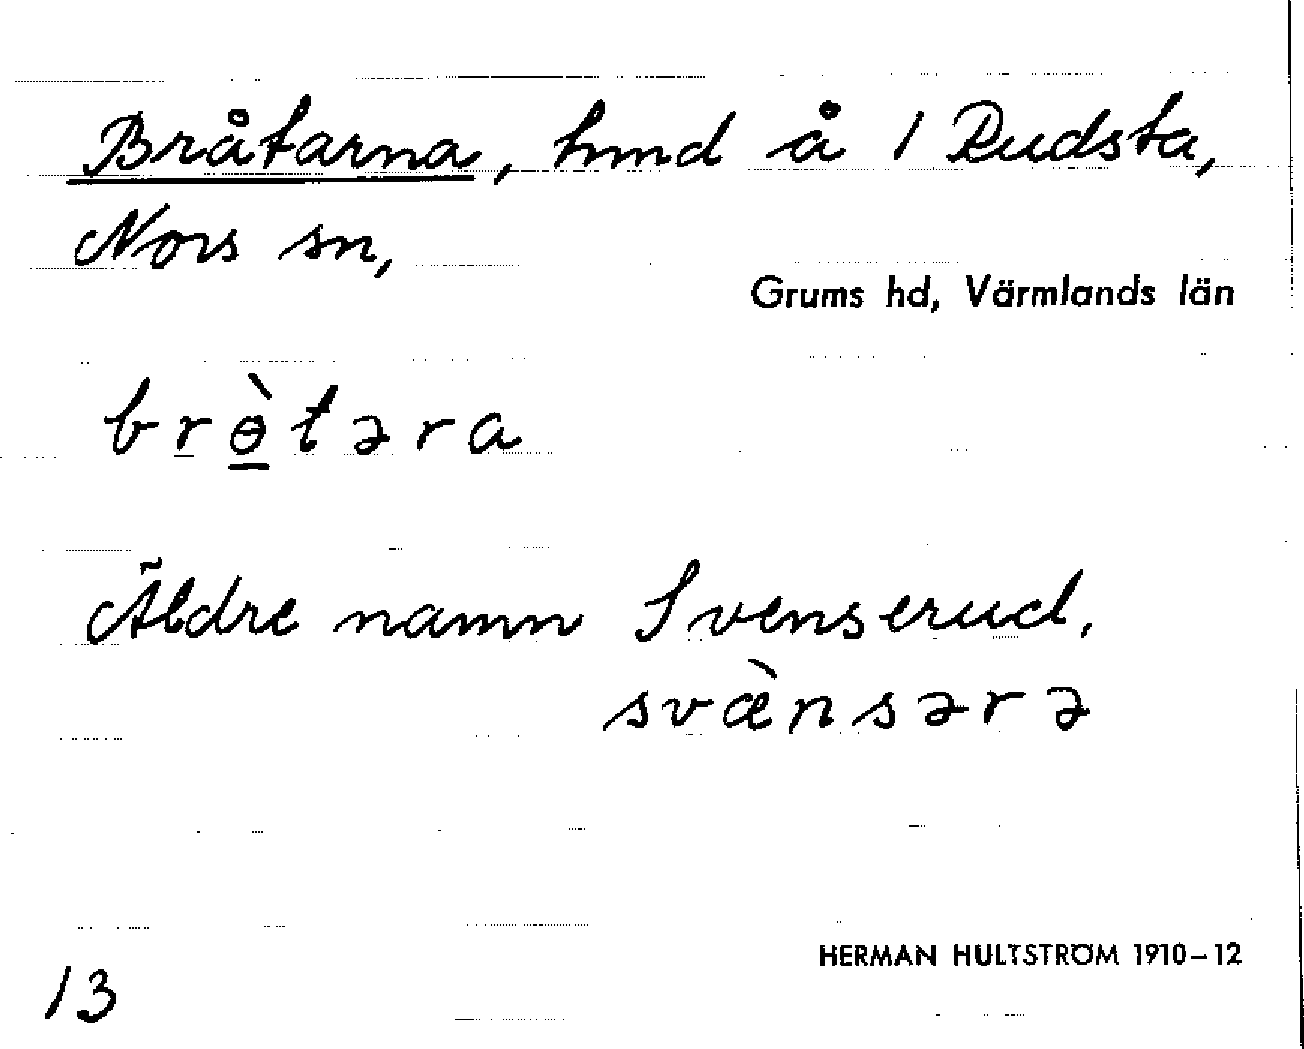 Bråtarna, hmd å 1 Rudsta,
Nors sn,
Grums hd, Värmlands län
brɵ̀təra
Äldre namn Svenserud,
svæ̀nsərə
HERMAN HULTSTRÖM 1910–12
13